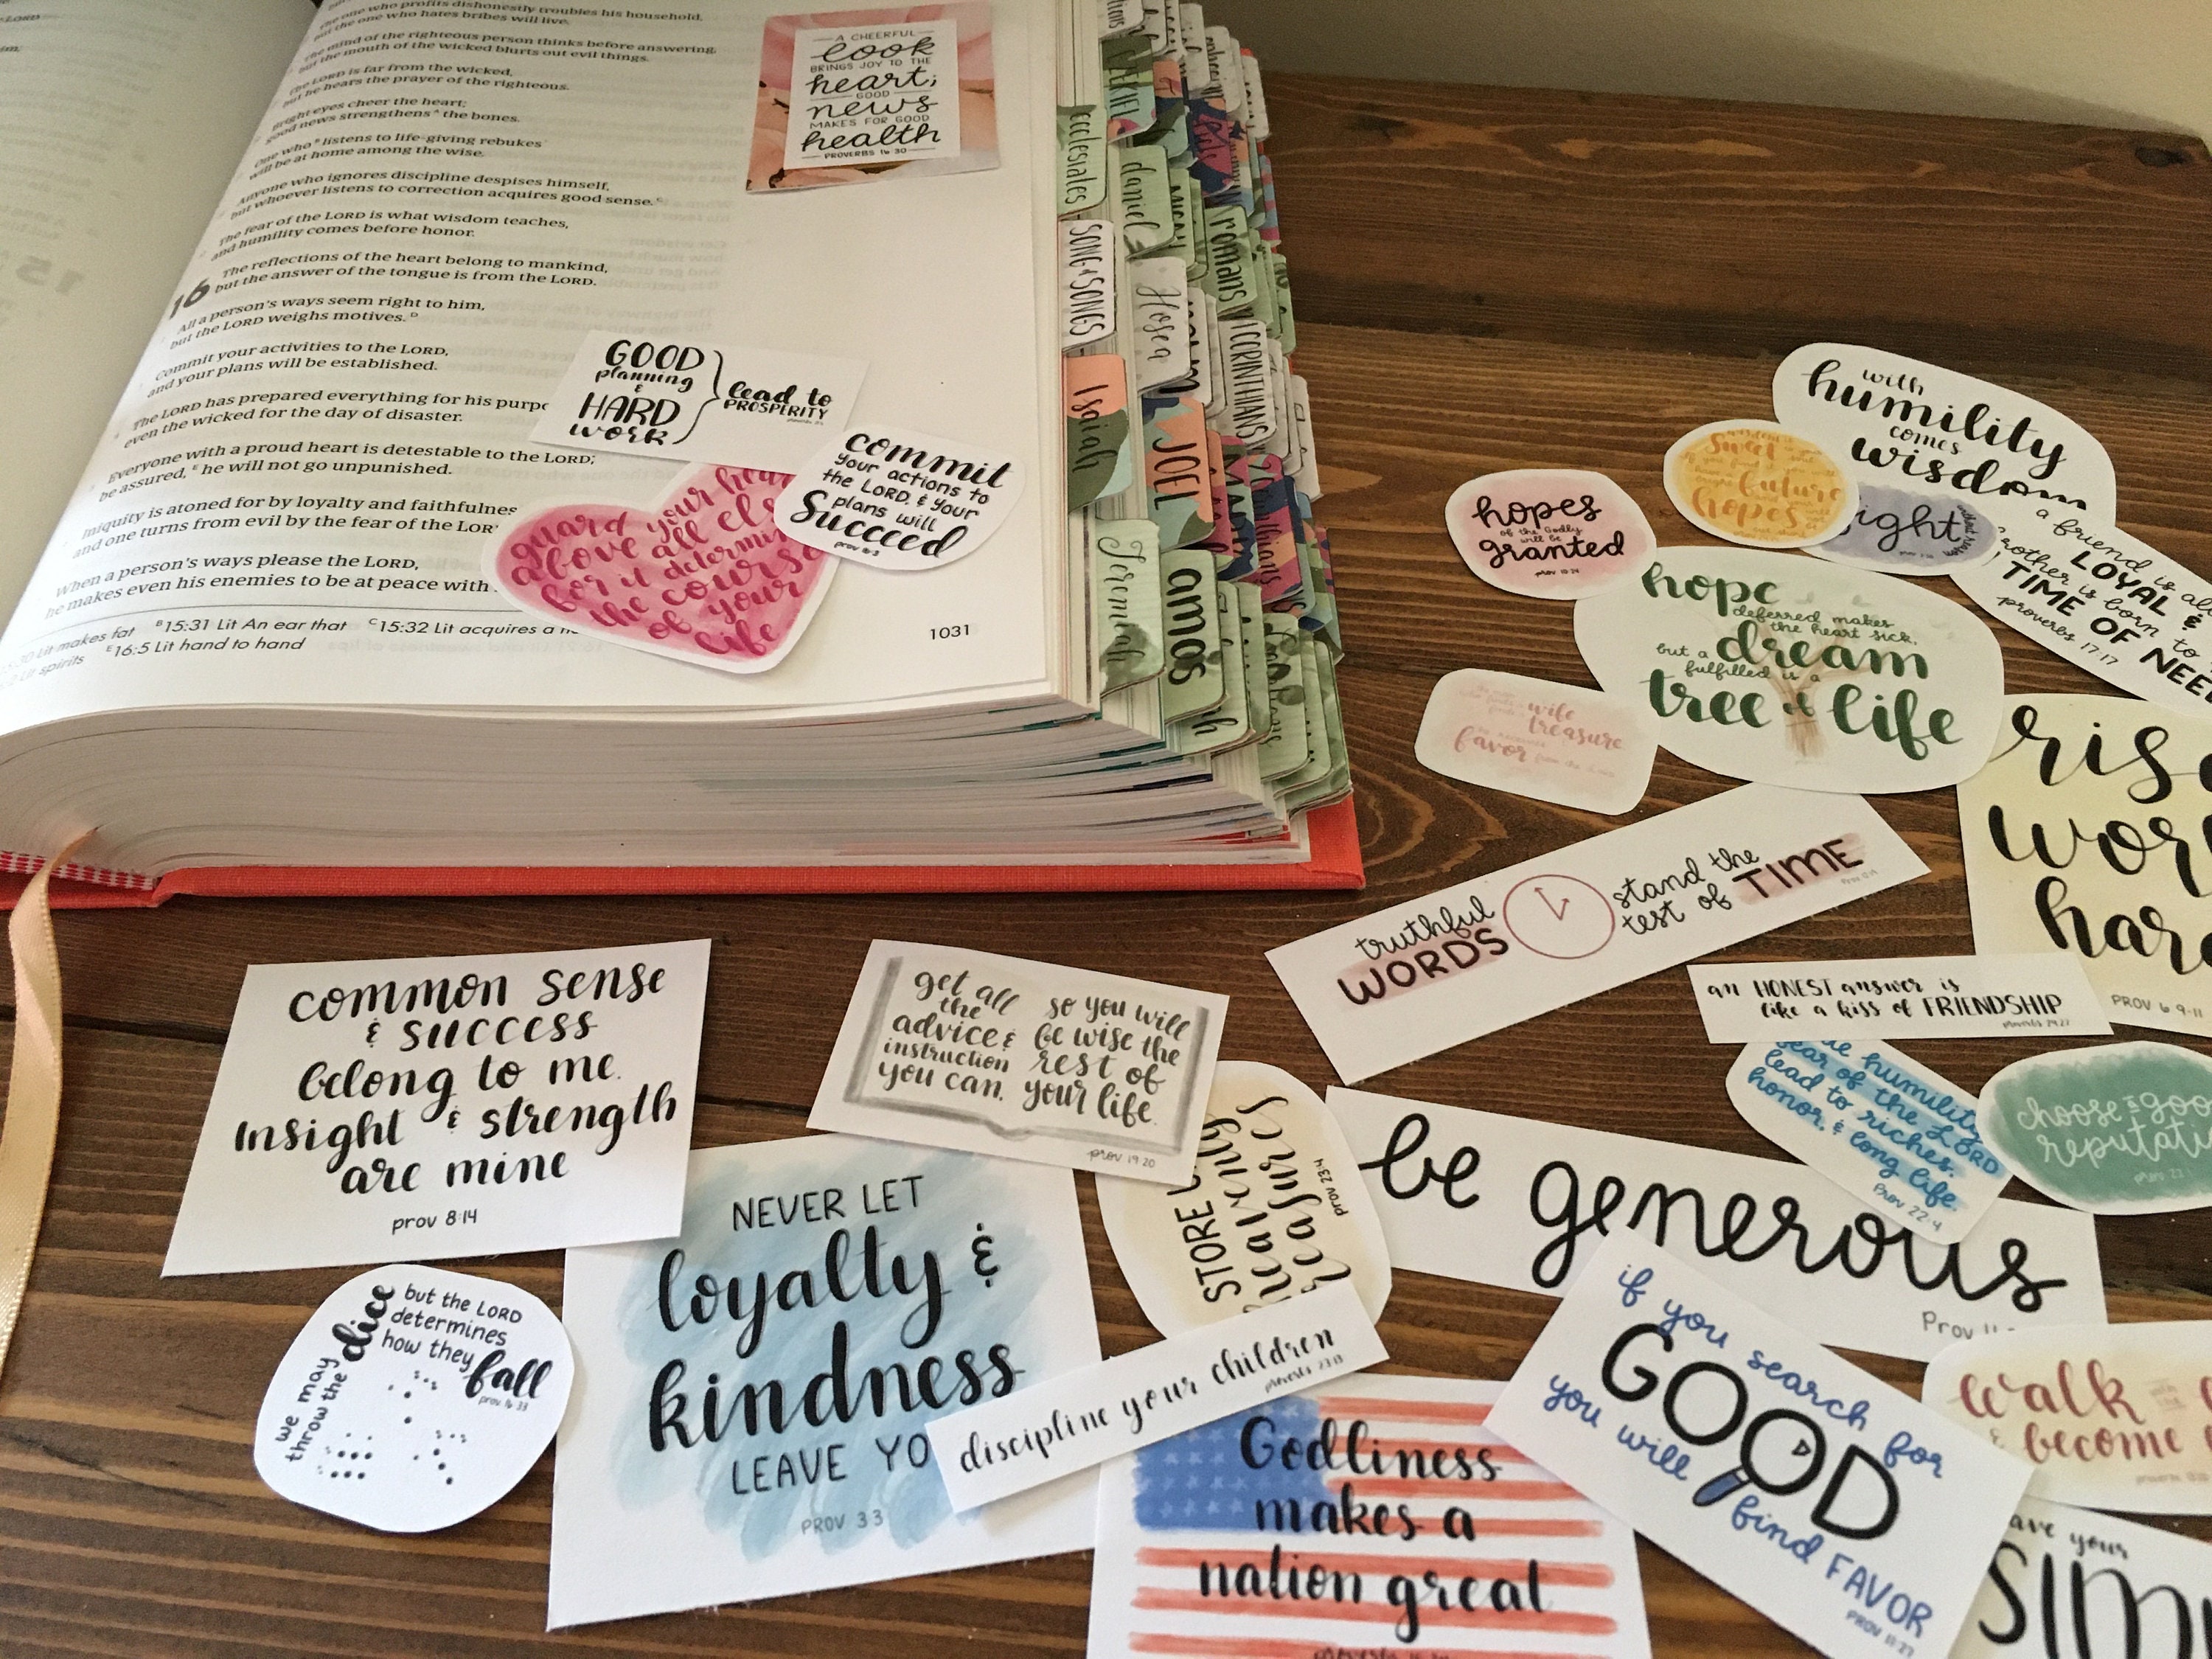 the one who profits dishonestly troubles his household,
but the one who hates bribes will live.
The mind of the righteous person thinks before answering,
but the mouth of the wicked blurts out evil things.
The LORD is far from the wicked,
but he hears the prayer of the righteous.
Bright eyes cheer the heart;
good news strengthens A the bones.
One who B listens to life-giving rebukes
will be at home among the wise.
Anyone who ignores discipline despises himself,
but whoever listens to correction acquires good sense. C
The fear of the LORD is what wisdom teaches,
and humility comes before honor.
16 The reflections of the heart belong to mankind,
but the answer of the tongue is from the LORD.
All a person's ways seem right to him,
but the LORD weighs motives. D
Commit your activities to the LORD,
and your plans will be established.
The LORD has prepared everything for his purpo
even the wicked for the day of disaster.
Everyone with a proud heart is detestable to the LORD;
be assured, E he will not go unpunished.
Iniquity is atoned for by loyalty and faithfulness
and one turns from evil by the fear of the LOR
When a person's ways please the LORD,
he makes even his enemies to be at peace with
Lit makes fat B 15:31 Lit An ear that C 15:32 Lit acquires a
Lit spirits E 16:5 Lit hand to hand
1031
A CHEERFUL
look
BRINGS JOY TO THE
heart;
GOOD
news
MAKES FOR GOOD
health
PROVERBS 15:30
GOOD
planning
&
HARD
work
lead to
PROSPERITY
commit
your actions to
the LORD, & your
plans will
Succeed
prov 16:3
guard your hear
above all els
for it determin
the course
of your
life
ecclesiastes
SONG of SONGS
Isaiah
Jeremiah
daniel
Hosea
JOEL
amos
romans
1 CORINTHIANS
with
humility
comes
wisdom
sweet
future
hopes
ight
hopes
of the Godly
will be
granted
prov 10:24
a friend is al
LOYAL &
rother is born to
TIME OF NEE
proverbs 17:17
hope
deferred makes
the heart sick,
but a dream
fulfilled is a
tree of life
wife
treasure
favor from the
ris
wor
har
PROV 6 9-11
truthful
WORDS
stand the
test of TIME
an HONEST answer is
like a kiss of FRIENDSHIP
proverbs 24:27
humility
fear of the LORD
lead to riches,
honor, & long life.
Prov 22:4
choose a goo
reputati
common sense
& success
belong to me.
Insight & strength
are mine
prov 8:14
get all
the
advice &
instruction
you can,
so you will
be wise the
rest of
your life.
prov 19:20
STORE U
heavenly
treasures
prov 23:4
be generous
Prov 11
we may
throw the dice
but the LORD
determines
how they
fall
prov 16:33
NEVER LET
loyalty &
kindness
LEAVE YO
PROV 3:3
discipline your children
proverbs 23:13
Godliness
makes a
nation great
if you search for
GOOD
you will find FAVOR
PROV 11:27
walk
& become
ave your
SIM